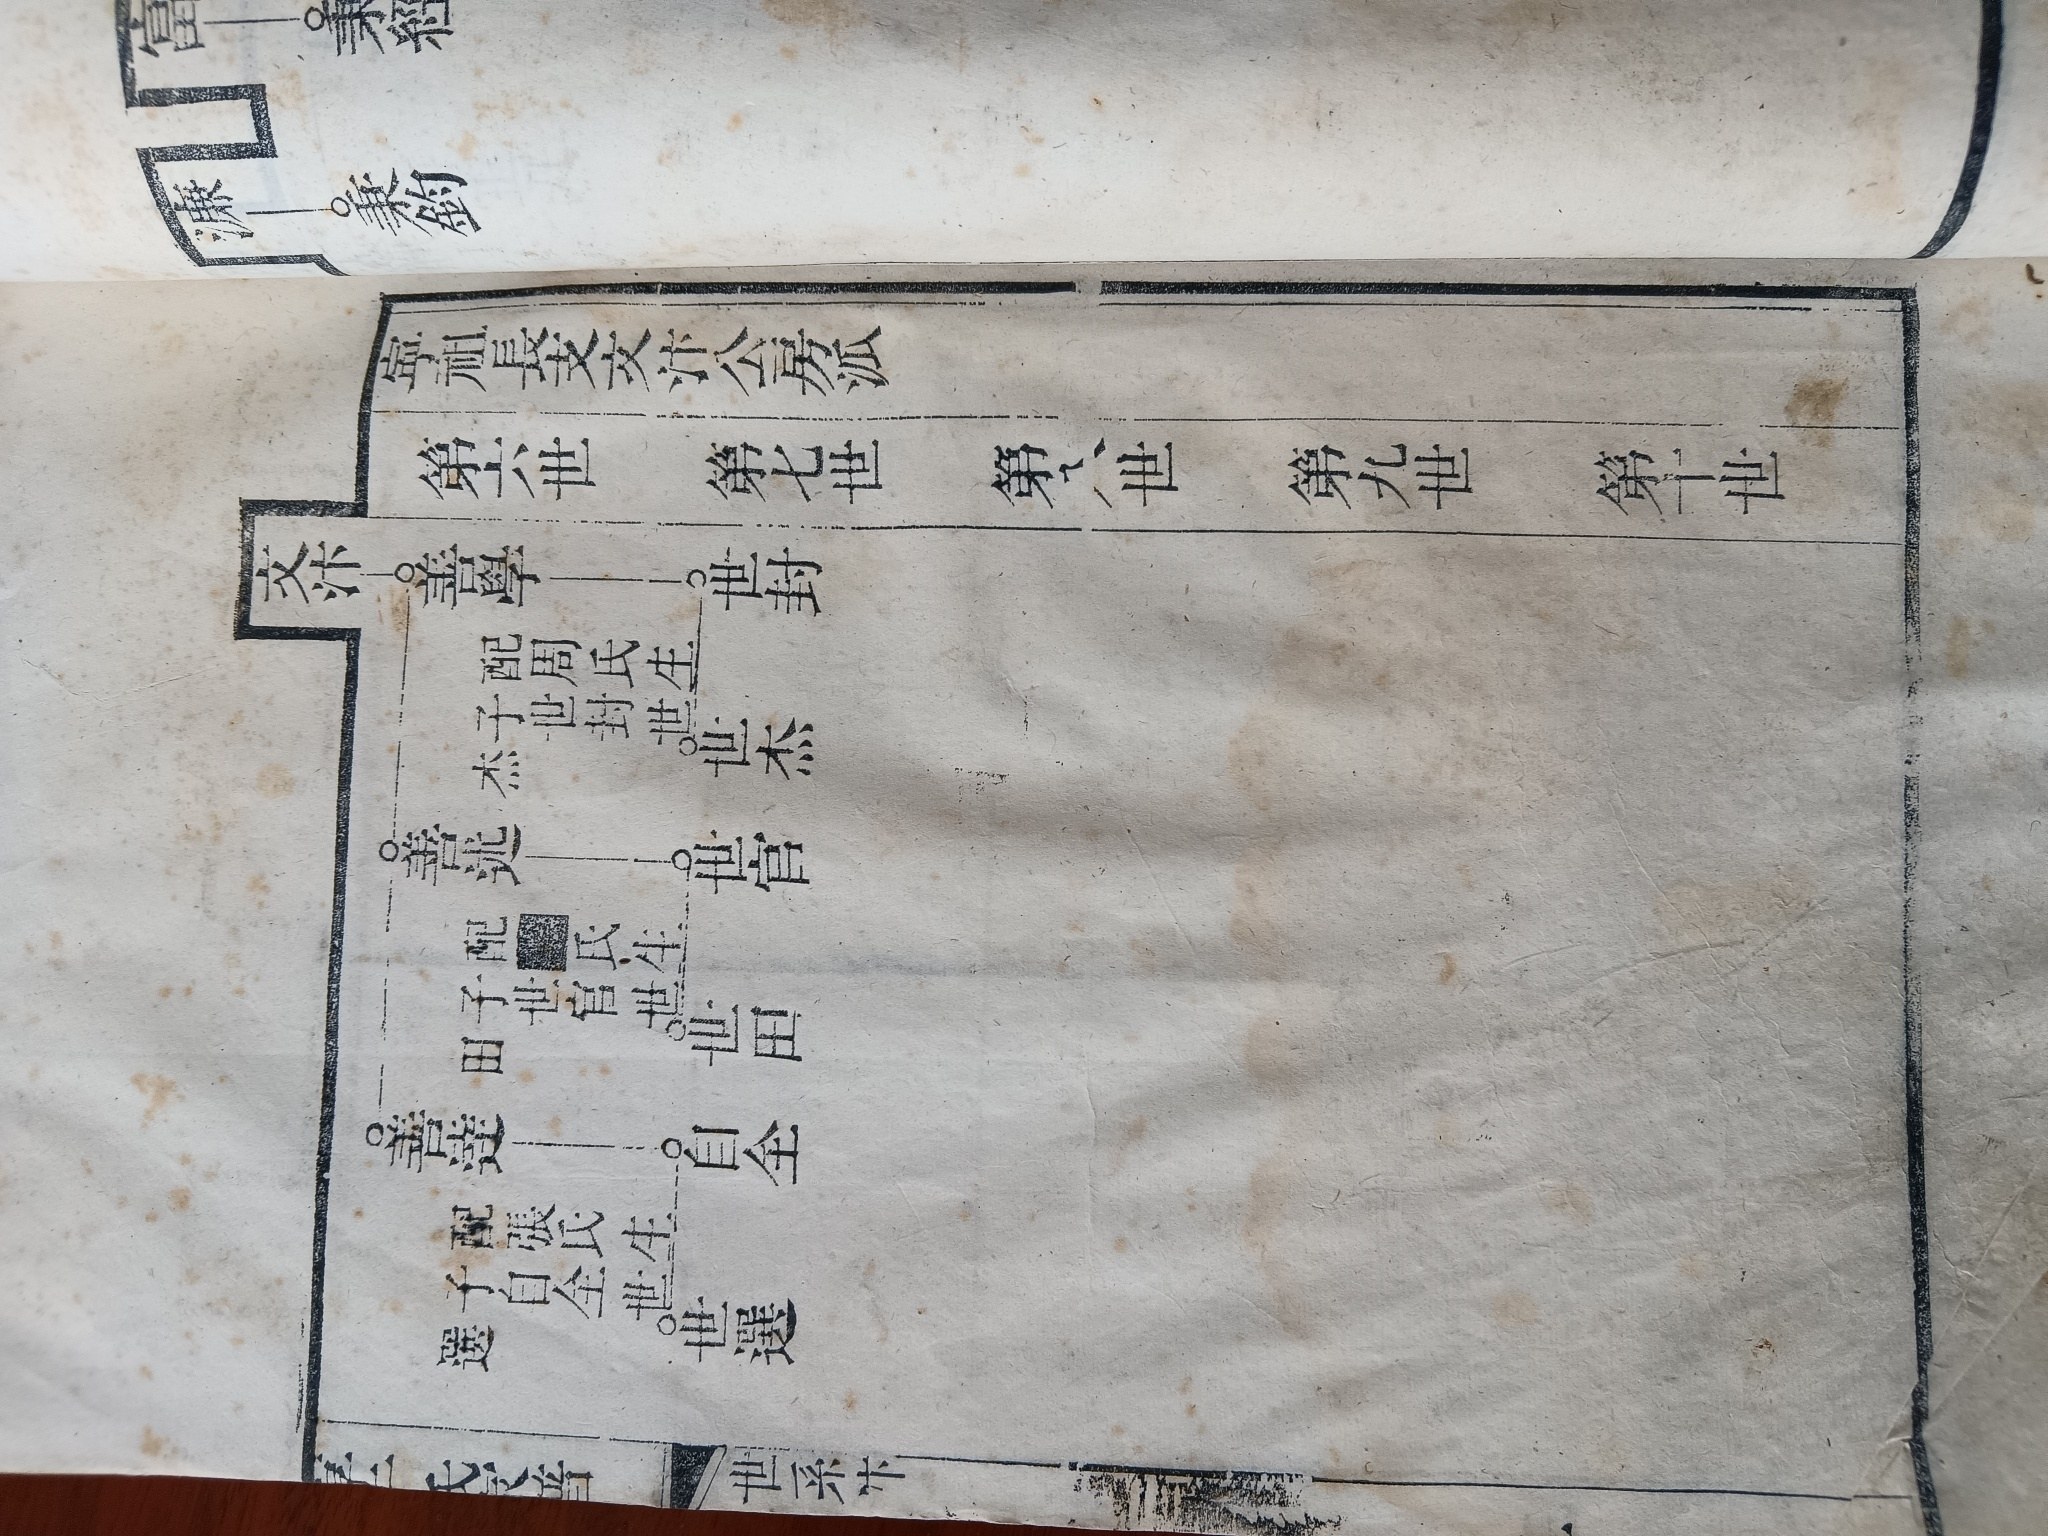 富 秉
濂 秉鈞
祖長支文汴公房派
第六世 第七世 第八世 第九世 第十世
文汴 善學 世封
配周氏生
子世封世
杰
世杰
善述 世官
配■氏生
子世官世
田
世田
善達 自全
配張氏生
子自全世
選
世選
氏宗譜 世系汴